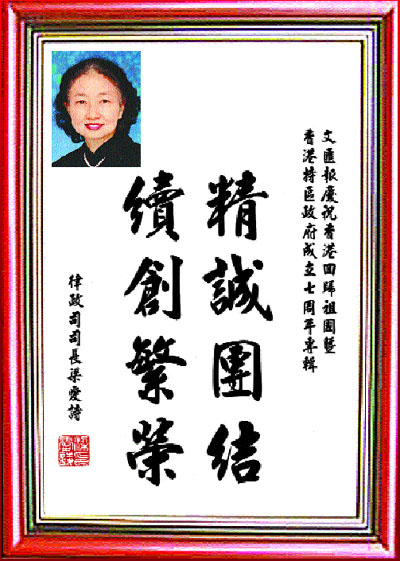 文匯報慶祝香港回歸祖國暨
香港特區政府成立七周年專輯
精誠團結
續創繁榮
律政司司長梁愛詩